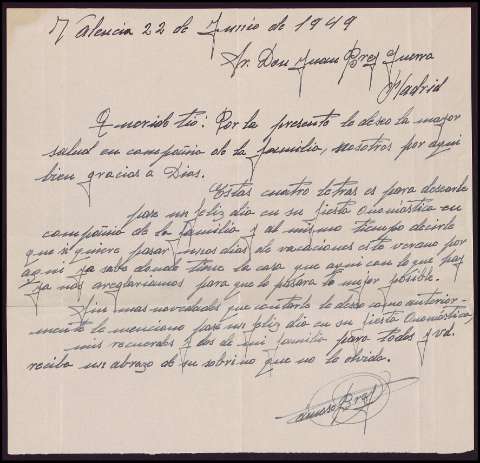 Valencia 22 de Junio de 1949
Sr. Don Juan Brey Guerra
Madrid
Querido tio: Por la presente le deseo la mayor
salud en compañia de la familia, nosotros por aqui
bien gracias a Dios.
Estas cuatro letras es para desearle
pase un feliz dia en su fiesta Onomástica en
compañia de la familia y al mismo tiempo decirle
que si quiere pasar unos dias de vacaciones este verano por
aqui ya sabe donde tiene la casa que aqui con lo que hay
ya nos arreglariamos para que lo pasara lo mejor posible.
Sin mas novedades que contarle le deseo como anterior-
mente le menciono pase un feliz dia en su fiesta Onomástica,
mis recuerdos y los de mi familia para todos y vd.
reciba un abrazo de su sobrino que no le olvida.
Brey